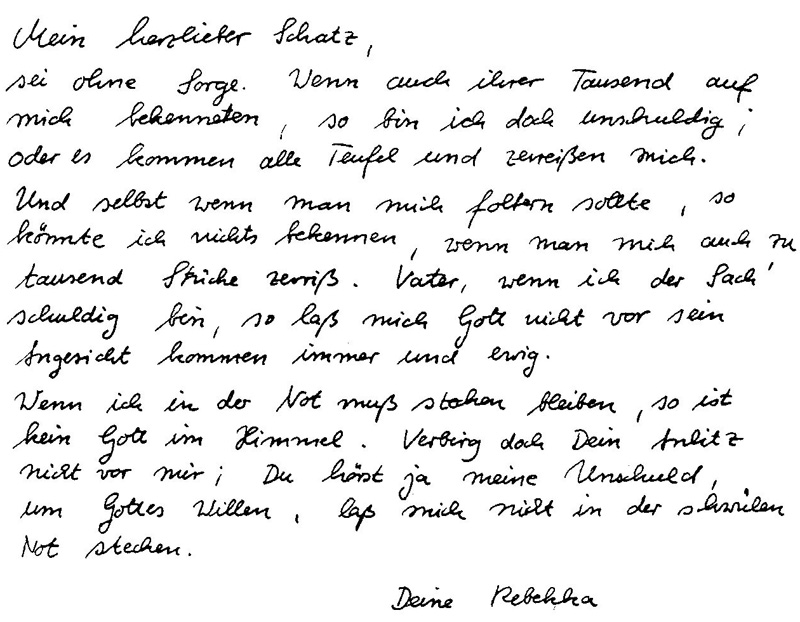 Mein herzlieber Schatz,
sei ohne Sorge. Wenn auch ihrer Tausend auf
mich bekenneten, so bin ich doch unschuldig;
oder es kommen alle Teufel und zerreißen mich.
Und selbst wenn man mich foltern sollte, so
könnte ich nichts bekennen, wenn man mich auch zu
tausend Stücke zerriß. Vater, wenn ich der Sach'
schuldig bin, so laß mich Gott nicht vor sein
Angesicht kommen immer und ewig.
Wenn ich in der Not muß stecken bleiben, so ist
kein Gott im Himmel. Verbirg doch Dein Antlitz
nicht vor mir; Du hörst ja meine Unschuld,
um Gottes Willen, laß mich nicht in der schwülen
Not stecken.
Deine Rebekka